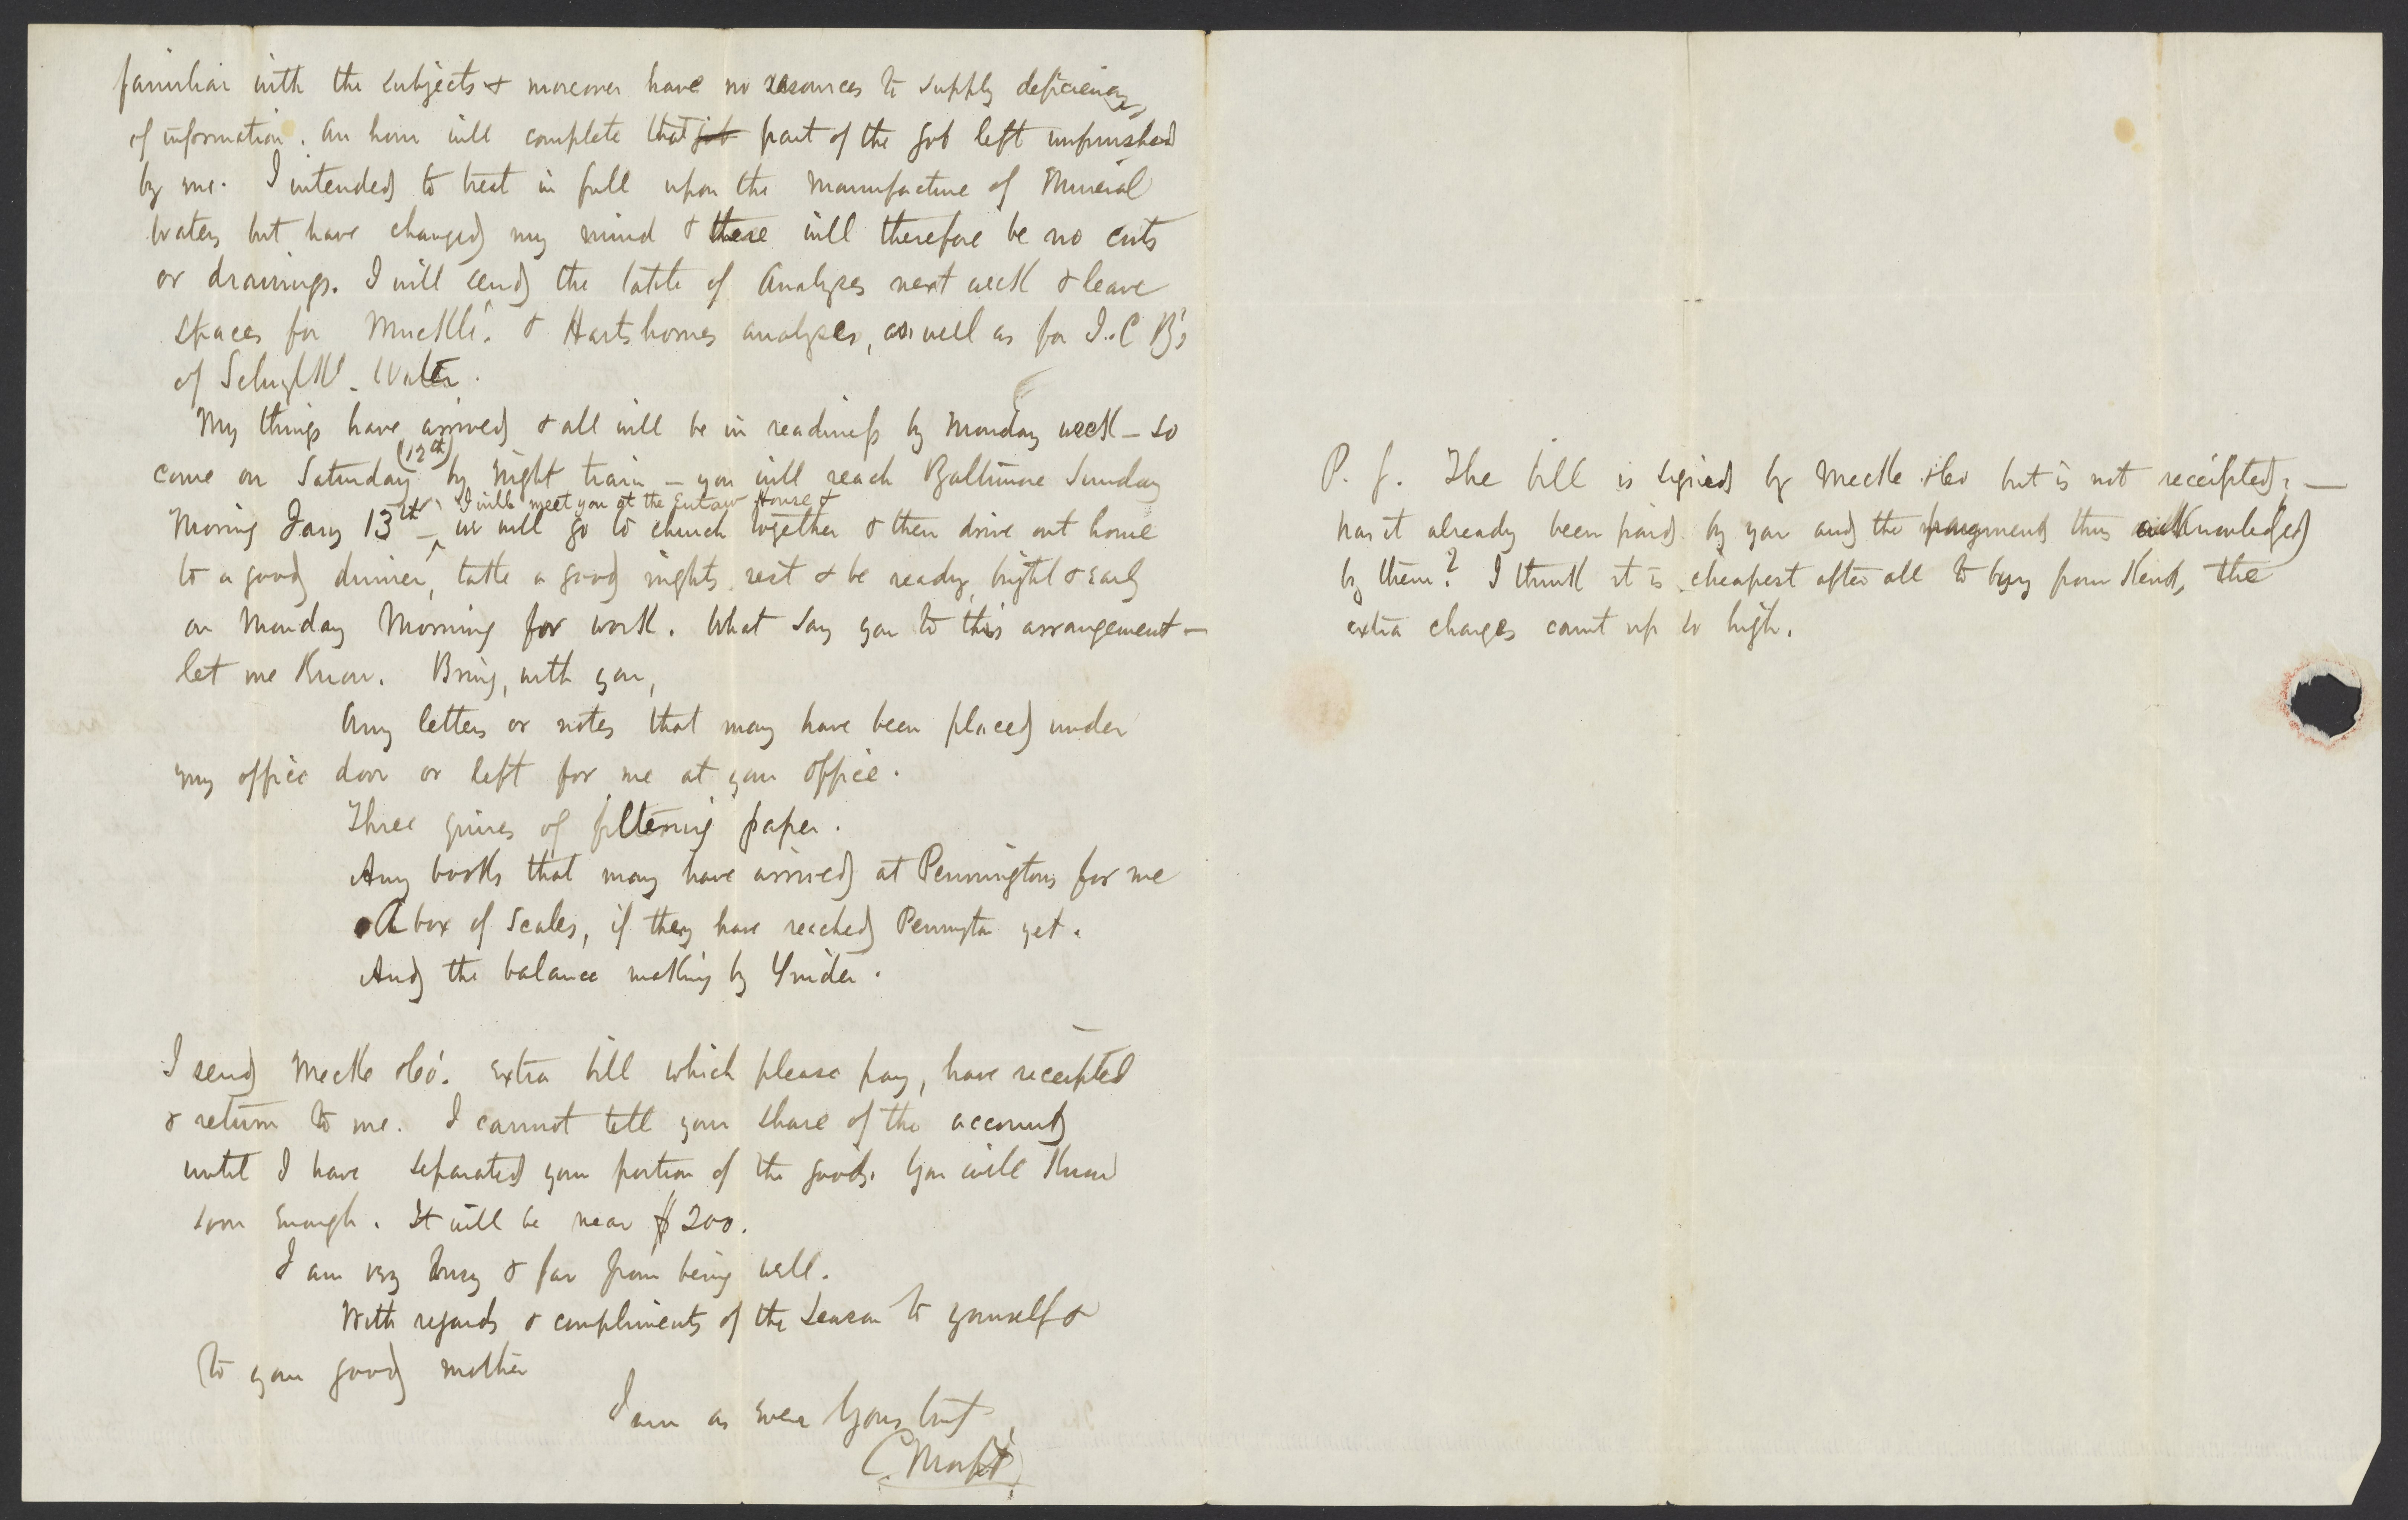 familiar with the subjects & moreover have no resources to supply deficiency
of information. An hour will complete that job part of the job left unfinished
by me. I intended to treat in full upon the manufacture of Mineral
Waters but have changed my mind & there will therefore be no cuts
or drawings. I will send the table of Analyses next week & leave
spaces for Muckle's & Hartshornes analyses, as well as for J. C B's
of Schuylkl. Water.
My things have arrived & all will be in readiness by Monday week - so
come on Saturday (12th) by night train - you will reach Baltimore Sunday
I will meet you at the Eutaw House &
Morning Jany 13th - we will go to church together & then drive out home
to a good dinner, take a good nights rest & be ready, bright & early
on Monday Morning for work. What say you to this arrangement -
let me know. Bring, with you,
Any letters or notes that may have been placed under
my office door or left for me at your office.
Three quires of filtering paper.
Any books that may have arrived at Penningtons for me
A box of Scales, if they have reached Pennington yet.
And the balance making by
I send Mecke & Co's. extra bill which please pay, have receipted
& return to me. I cannot tell your share of the account
until I have separated your portion of the goods. You will know
soon enough. It will be near $200.
I am very busy & far from being well.
With regards & compliments of the Season to yourself &
to your good mother
I am as ever Yours but
C Morfit
P. S. The bill is signed by Mecke & Co but is not receipted; -
has it already been paid by you and the payment thus acknowledged
by them? I think it is cheapest after all to buy from Kent, the
extra charges count up so high.